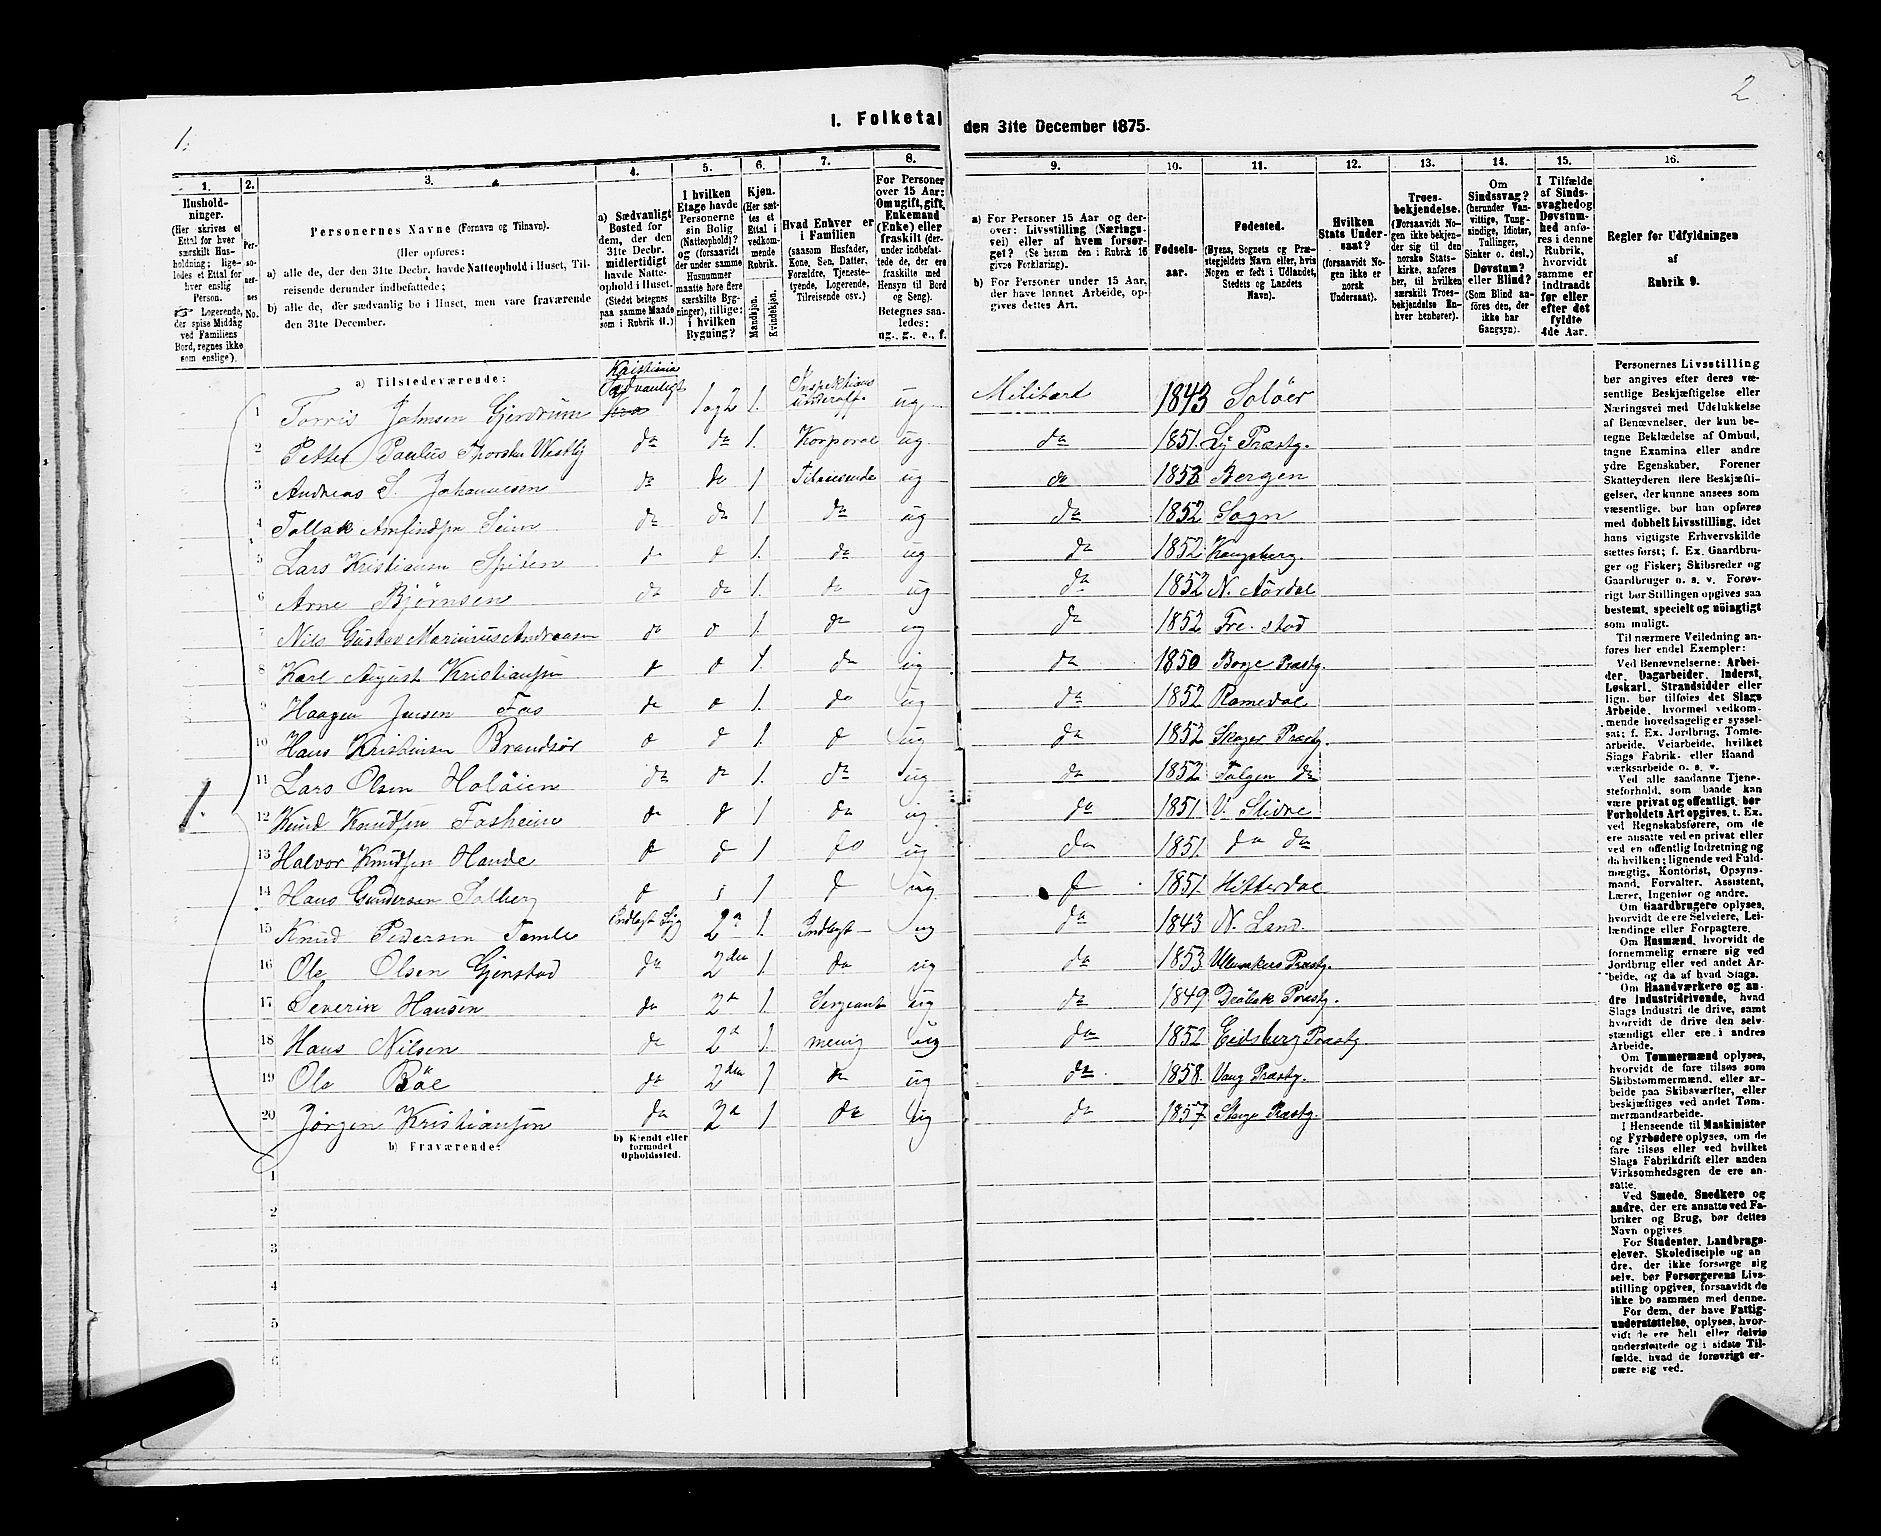 1.
2
I. Folketal den 31te December 1875.
1.
2.
3.
4.
5.
6.
7.
8.
9.
10.
11.
12.
13.
14.
15.
16.
Husholdninger.
(Her skrives et Ettal for hver særskilt Husholdning; ligeledes et Ettal for hver enslig Person.
Logerende, der spise Middag ved Familiens Bord, regnes ikke som enslige).
Personernes No.
Personernes Navne (Fornavn og Tilnavn).
(Her opføres:
a) alle de, der den 31te Decbr. havde Natteophold i Huset, Tilreisende derunder indbefattede;
b) alle de, der sædvanlig bo i Huset, men vare fraværende den 31te December.
a) Sædvanligt Bosted for dem, der den 31te Decbr. midlertidigt havde Natteophold i Huset. (Stedet betegnes paa samme Maade som i Rubrik 11.)
I hvilken Etage havde Personerne sin Bolig (Natteophold)? og (forsaavidt der under samme Husnummer maatte høre flere særskilte Bygninger), tillige: i hvilken Bygning?
Kjøn. (Her sættes et Ettal i vedkommende Rubrik.
Mandkjøn.
Kvindekjøn.
Hvad Enhver er i Familien (saasom Husfader, Kone, Søn, Datter, Forældre, Tjenestetyende, Logerende, Tilreisende osv.)
For Personer over 15 Aar: Om ugift, gift, Enkemand (Enke) eller fraskilt (derunder indbefattede de, der ere fraskilte med Hensyn til Bord og Seng). Betegnes saaledes: ug., g., e., f.
a) For Personer 15 Aar og derover: Livsstilling (Næringsvei) eller af hvem forsørget? (Se herom den i Rubrik 16 givne Forklaring).
b) For Personer under 15 Aar, der have lønnet Arbeide, opgives dettes Art.
Fødselsaar.
Fødested.
(Byens, Sognets og Præstegjeldets Navn eller, hvis Nogen er født i Udlandet, Stedets og Landets Navn).
Hvilken Stats Undersaat? (forsaavidt Nogen ikke er norsk Undersaat).
Troesbekjendelse. (Forsaavidt Nogen ikke bekjender sig til den norske Statskirke, anføres her, til hvilken særskilt Troesbekjendelse Enhver henhører).
Om Sindssvag? (herunder Vanvittige, Tungsindige, Idioter, Tullinger, Sinker o. desl.) Døvstum? eller Blind? (Som Blind anføres den, der ikke har Gangsyn).
I Tilfælde af Sindssvaghed og Døvstumhed anføres i denne Rubrik, hvorvidt samme er indtraadt før eller efter det fyldte 4de Aar.
Regler for Udfyldningen af Rubrik 9.
a) Tilstedeværende:
1.
1 Torris Johnsen Gjerdrum Kristiania Sædvanligt 1 og 2 1. Inspektions underoff. ug. Militært 1843 Soløer
2 Petter Paulus Thorsten Westby do do 1. Korporal ug do 1851. Præstg.
3 Andreas S. Johannesen do do 1 Tilreisende ug do 1853 Bergen
4 Tollak Seim do do 1 do ug do 1852 Sogn
5 Lars Kristiansen Spiten d d 1. do ug do 1852 Kongsberg.
6 Arne Bjørnsen do do 1. do ug do 1852 N. Aurdal
7 Nils Gustav Marinius Andreasen do d 1. do ug do 1852 Fre. stad
8 Karl August Kristiansen d d 1 do ug do 1850 Borge Præstg.
9 Haagen Jensen Fos do d 1. do ug do 1852 Romedal
10 Hans Kristiansen Brandsør d d 1. d ug do 1852 Skoger Præstg.
11 Lars Olsen Holøien do do 1. do ug do 1852 Tolgen do
12 Knud Knudsen Fosheim do d 1 do ug. do 1851. V. Slidre
13 Halvor Knudsen Hande d d 1 do ug do 1851. do do
14 Hans Gundersen Solberg d 1 d ug. d 1851. Hitterdal
15 Knud Pedersen Tomle Indlagt Syg 2d 1. Indlagt ug do 1843 N. Land
16 Ole Olsen Gjenstad do 2den 1 do ug do 1853 Ullensakers Præstg.
17 Severin Hansen do 2d 1. Sergeant ug do 1849. Drøbak Præstg.
18 Hans Nilsen do 2d 1. menig ug do 1852 Eidsberg Præstg
19 Ole Bøe do 2den 1 do ug do 1858. Vang Præstg.
20 Jörgen Kristiansen do 2d 1 do ug do 1857 Stange Præstg.
b) Fraværende:
b) Kjendt eller formodet Opholdssted.
1
2
3
4
5
6
Personernes Livsstilling
bør angives efter deres væ-
sentlige Beskjæftigelse eller
Næringsvei med Udelukkelse
af Benævnelser, der kun be-
tegne Beklædelse af Ombud,
tagne Examina eller andre
ydre Egenskaber. Forener
Skatteyderen flere Beskjæfti-
gelser, der kunne ansees som
væsentlige, bør han opføres
med dobbelt Livsstilling, idet
hans vigtigste Erhvervskilde
sættes først; f. Ex. Gaardbru-
ger og Fisker; Skibsreder og
Gaardbruger o. s. v. Forøv-
rigt bør Stillingen opgives saa
bestemt, specielt og nöiagtigt
som muligt.
Til nærmere Veiledning an-
føres her endel Exempler:
Ved Benævnelserne: Arbei-
der, Dagarbeider, Inderst,
Løskarl, Strandsidder eller
lign. bør tilføies det Slags
Arbeide, hvormed vedkom-
mende hovedsagelig er syssel-
sat; f. Ex. Jordbrug, Tomte-
arbeide, Veiarbeide, hvilket
Slags Fabrik- eller Haand
værksarbeide o. s. v.
Ved alle saadanne Tjene-
steforhold, som baade kan
være privat og offentligt, bør
Forholdets Art opgives, t. Ex.
ved Regnskabsførere, om de
ere ansatte ved en privat eller
ved en offentlig Indretning og
da hvilken; lignende ved Fuld-
mægtig, Kontorist, Opsyns-
mand, Forvalter, Assistent,
Lærer, Ingeniør og andre.
Om Gaardbrugere oplyses,
hvorvidt de ere Selveiere, Lei-
lændinge eller Forpagtere.
Om Husmænd, hvorvidt de
fornemmelig ernære sig ved
Jordbrug eller ved andet Ar-
beide, og da af hvad Slags.
Om Haandværkere og an-
dre Industridrivende, hvad
Slags Industri de drive, samt
hvorvidt de drive den selv-
stændigt eller ere i andres
Arbeide.
Om Tømmermænd oplyses,
hvorvidt de fare tilsøs som
Skibstømmermænd, eller ar-
beide paa Skibsværfter, eller
beskjæftiges ved andet Tøm-
mermandsarbeide.
I Henseende til Maskinister
og Fyrbødere oplyses, om de
fare tilsøs eller ved hvilket
Slags Fabrikdrift eller anden
Virksomhedsgren de ere an-
satte.
Ved Smede, Snedkere og
andre, der ere ansatte ved Fa-
briker og Brug, bør dettes
Navn opgives
For Studenter, Landbrugs-
elever, Skoledisciple og an
dre, der ikke forsørge sig
selv, bør Forsørgerens Livs-
stilling opgives, forsaavidt de
ikke bo sammen med denne.
For dem, der have Fattig-
understøttelse, oplyses, hvor-
vidt de ere helt eller delvis
understøttede og i sidste Til-
fælde, hvad de forøvrigt er-
nære sig ved.